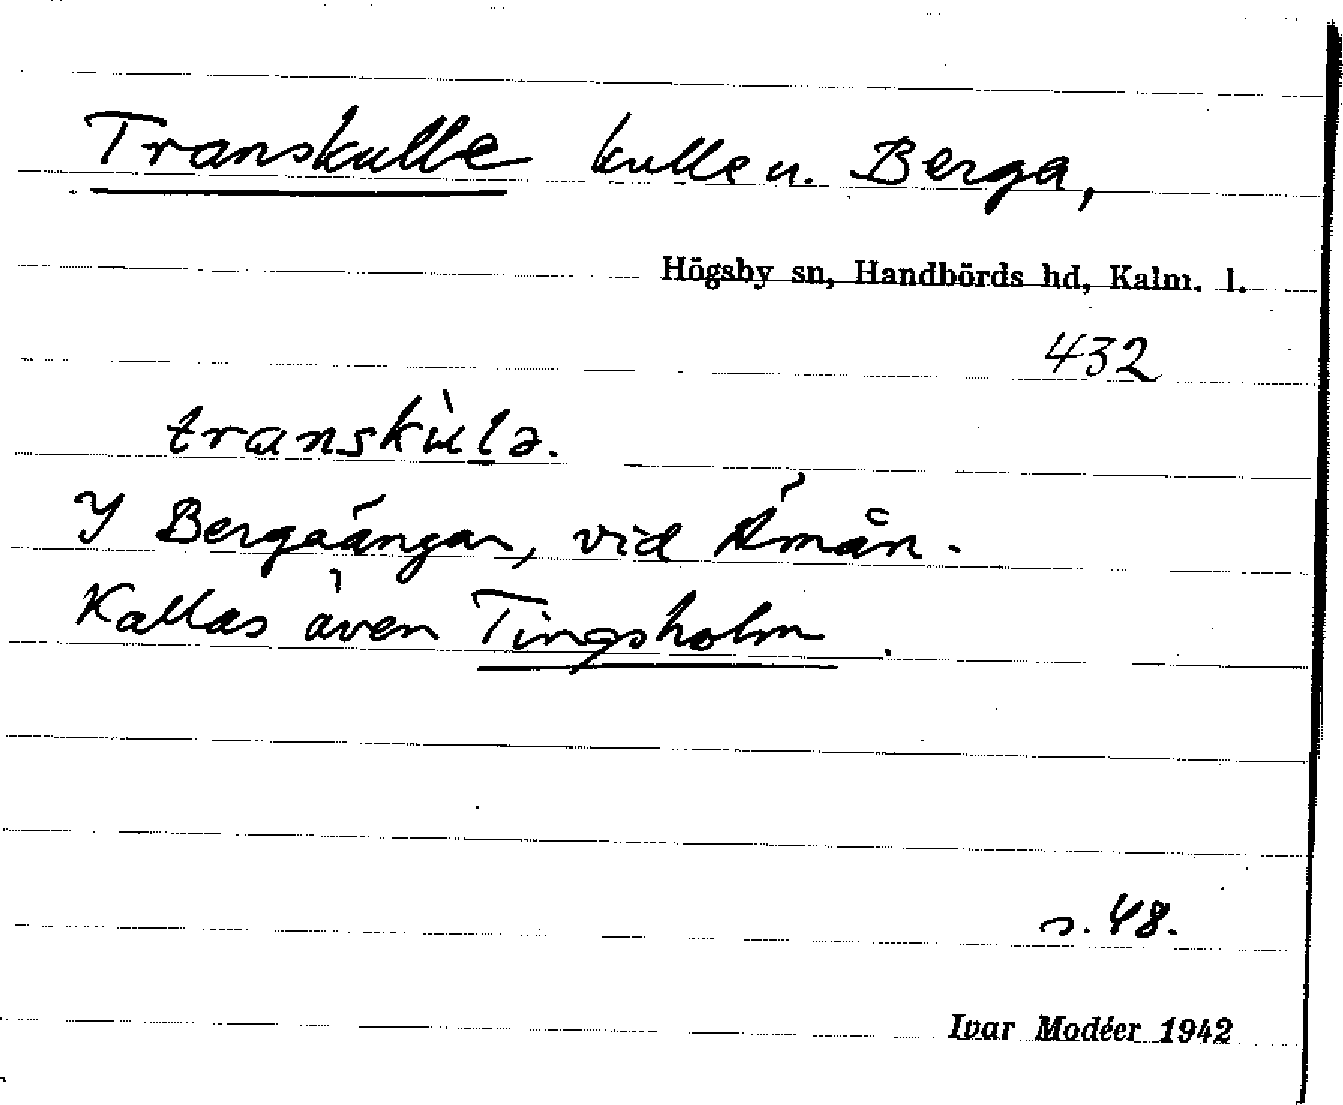 Transkulle kulle u. Berga,
Högsby sn, Handbörds hd, Kalm. l.
432
transkùlə.
I Bergaängar, vid Åmån.
Kallas även Tingsholm.
s. 48.
Ivar Modéer 1942